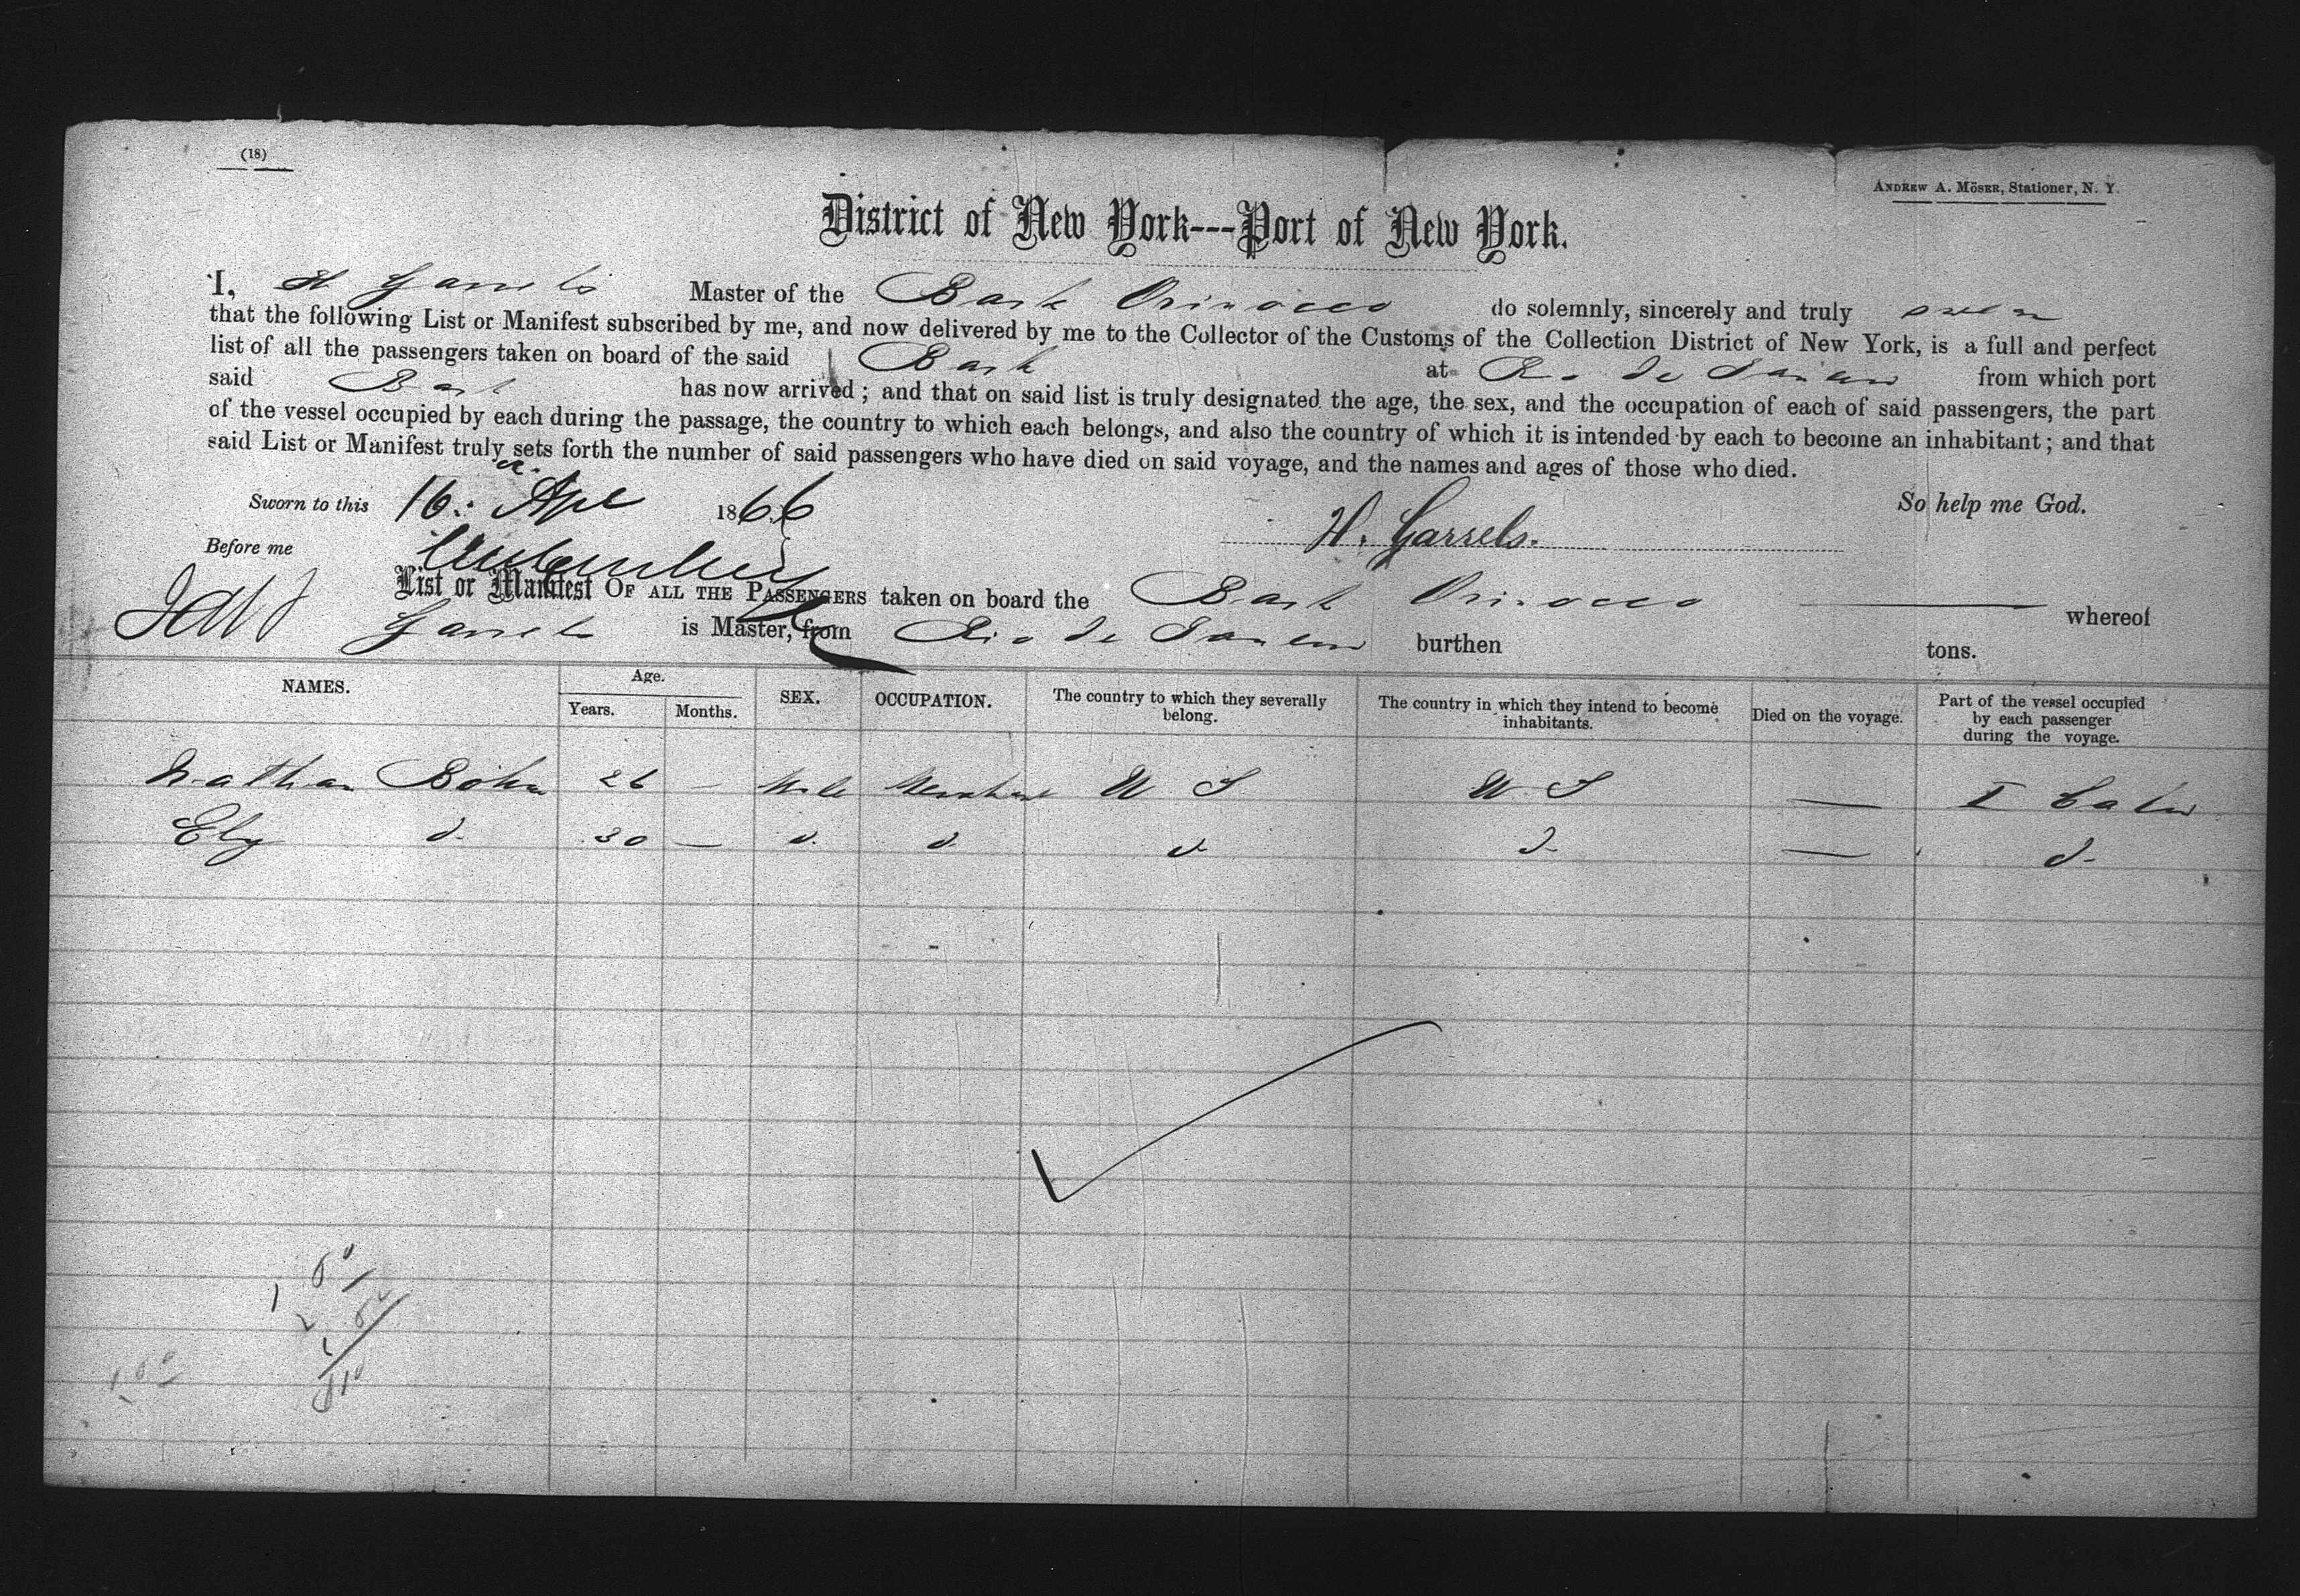 (18)
ANDREW A. MÖSER, Stationer, N. Y.
District of New York---Port of New York.
I, H Garrels Master of the Bark Orinocco do solemnly, sincerely and truly swear
that the following List or Manifest subscribed by me, and now delivered by me to the Collector of the Customs of the Collection District of New York, is a full and perfect
list of all the passengers taken on board of the said Bark at Rio de Janeiro from which port
said Bark has now arrived; and that on said list is truly designated the age, the sex, and the occupation of each of said passengers, the part
of the vessel occupied by each during the passage, the country to which each belongs, and also the country of which it is intended by each to become an inhabitant; and that
said List or Manifest truly sets forth the number of said passengers who have died on said voyage, and the names and ages of those who died.
Sworn to this 16. Apl 1866 So help me God.
H. Garrels.
Before me
List or Manifest OF ALL THE PASSENGERS taken on board the Bark Orinocco whereof
Garrels is Master, from Rio de Janeiro burthen tons.
NAMES. Age. Years. Months. SEX. OCCUPATION. The country to which they severally belong. The country in which they intend to become inhabitants. Died on the voyage. Part of the vessel occupied by each passenger during the voyage.
Nathan Böhm 26 — Male Merchant U S U. S — I Cabin
Ely d. 30 — d. d. d- d- — d-